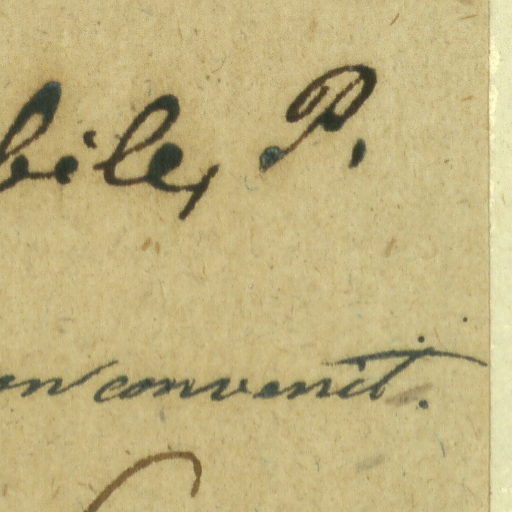 bile, P.
on convenit.